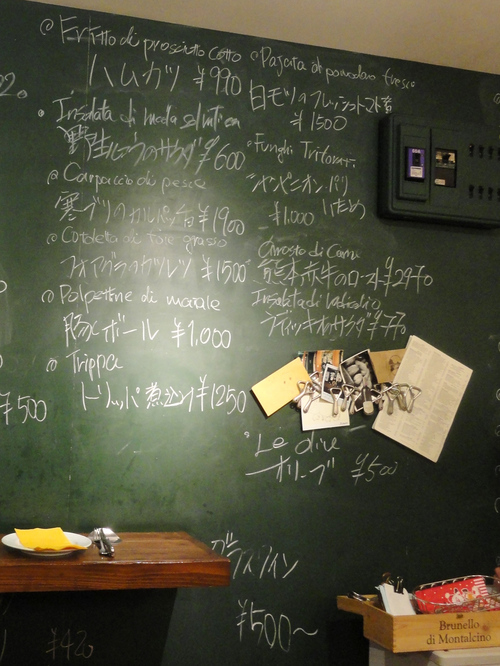 Fritto di prosciutto cotto
ハムカツ ¥990
Insalata di
サラダ ¥600
Carpaccio di pesce
寒ブリのカルパッチョ ¥1900
Cotoletta di foie grasso
フォアグラのカツレツ ¥1500
Polpettine di maiale
豚ボール ¥1,000
Trippa
トリッパ煮込み ¥1250
Pajata di pomodoro fresco
白モツのフレッシュトマト煮
¥1500
Funghi Trifolati
シャンピニオンバリ
¥1.000 いため
Arrosto di Carne
熊本赤牛のロースト ¥2970
Insalata di Radicchio
サラダ ¥770
Le olive
オリーブ ¥500
グラスワイン
¥500〜
¥500
¥420
Brunello
di Montalcino